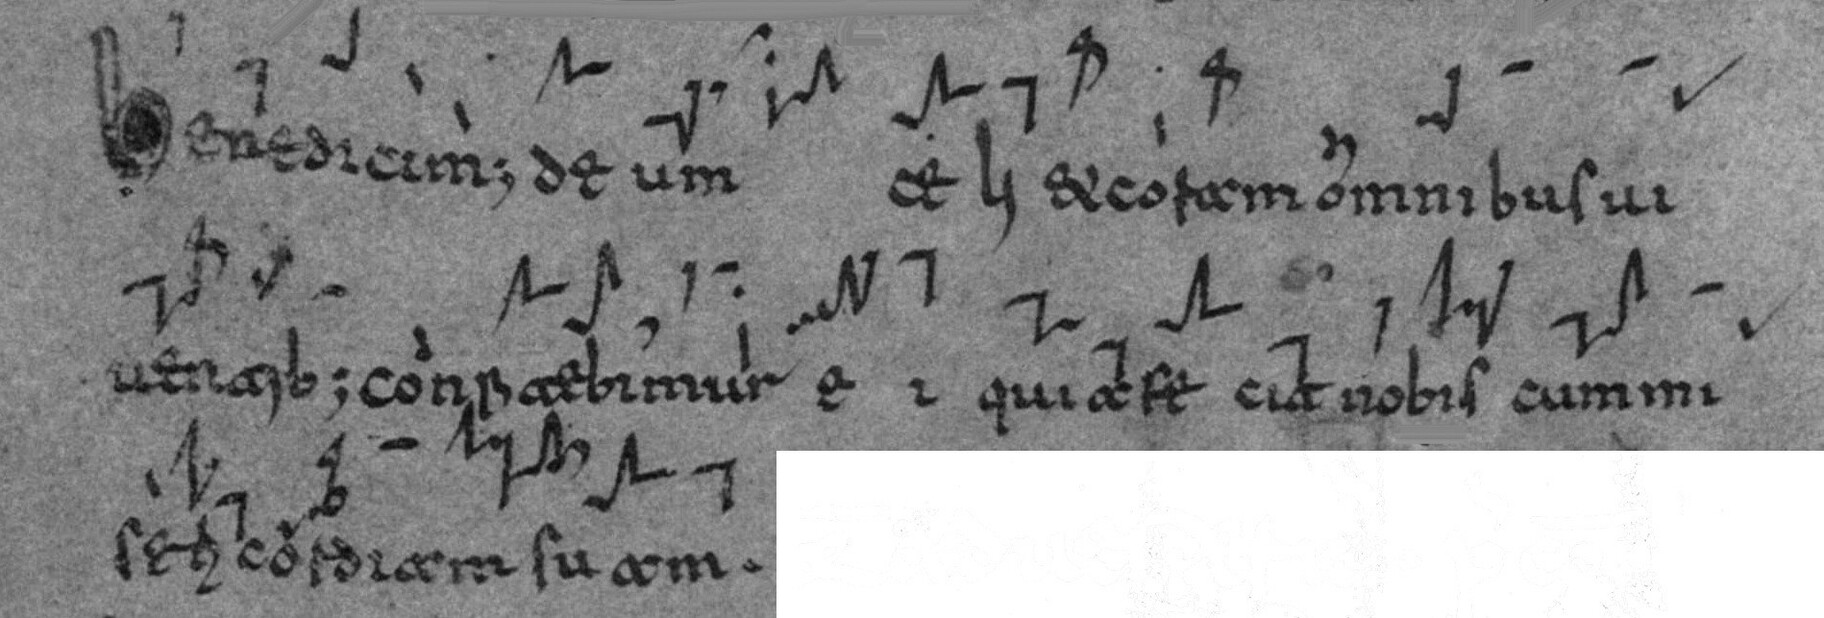 Benedicim; deum et h &coram omnibus ui
uentib; confitebimur ei quia fecit nobiscum mi
sericordiam suam.